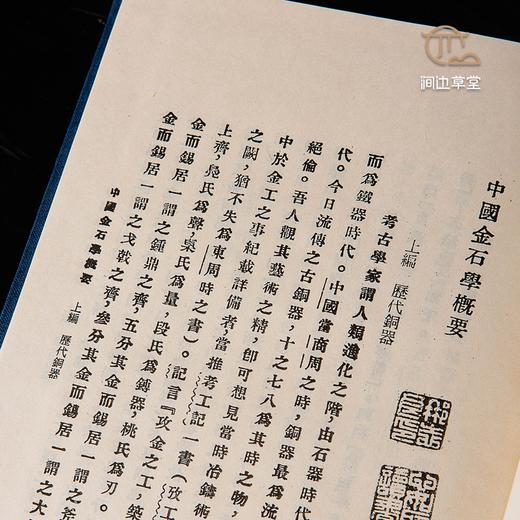 涧边草堂
中國金石學概要
上編 歷代銅器
考古學家謂人類進化之階,由石器時代
而爲鐵器時代。中國當商周之時,銅器最爲
代。今日流傳之古銅器,十之七八爲其時之物,
絕倫。吾人觀其藝術之精,卽可想見當時冶鑄術
中於金工之事紀載詳備者,當推考工記一書(攷工
之闕,猶不失爲東周時之書)。記言『攻金之工,築
上齊,鳧氏爲聲,㮚氏爲量,段氏爲鎛器,桃氏爲刃。
金而錫居一謂之鍾鼎之齊,五分其金而錫居一謂之斧
金而錫居一謂之戈戟之齊,參分其金而錫居一謂之大
中國金石學概要 上編 歷代銅器